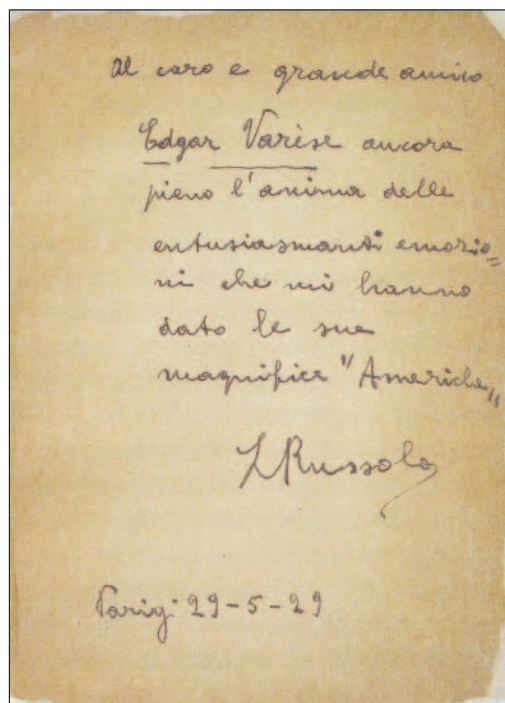 Al caro e grande amico
Edgar Varèse ancora
pieno l'anima delle
entusiasmanti emozio=
ni che mi hanno
dato le sue
magnifice "Americhe„
L Russolo
Parigi 29-5-29